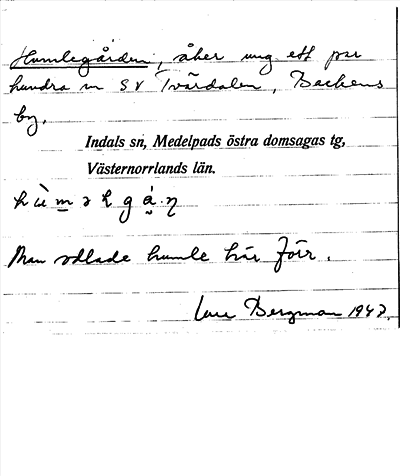 Humlegården, åker ung ett par
hundra m SV Tvärdalen, Backens
by.
Indals sn, Medelpads östra domsagas tg,
Västernorrlands län.
Man odlade humle här förr.
Bergman 1947.